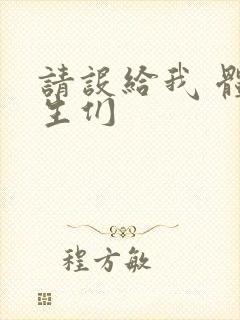 請設給我 體
生们
程方敏